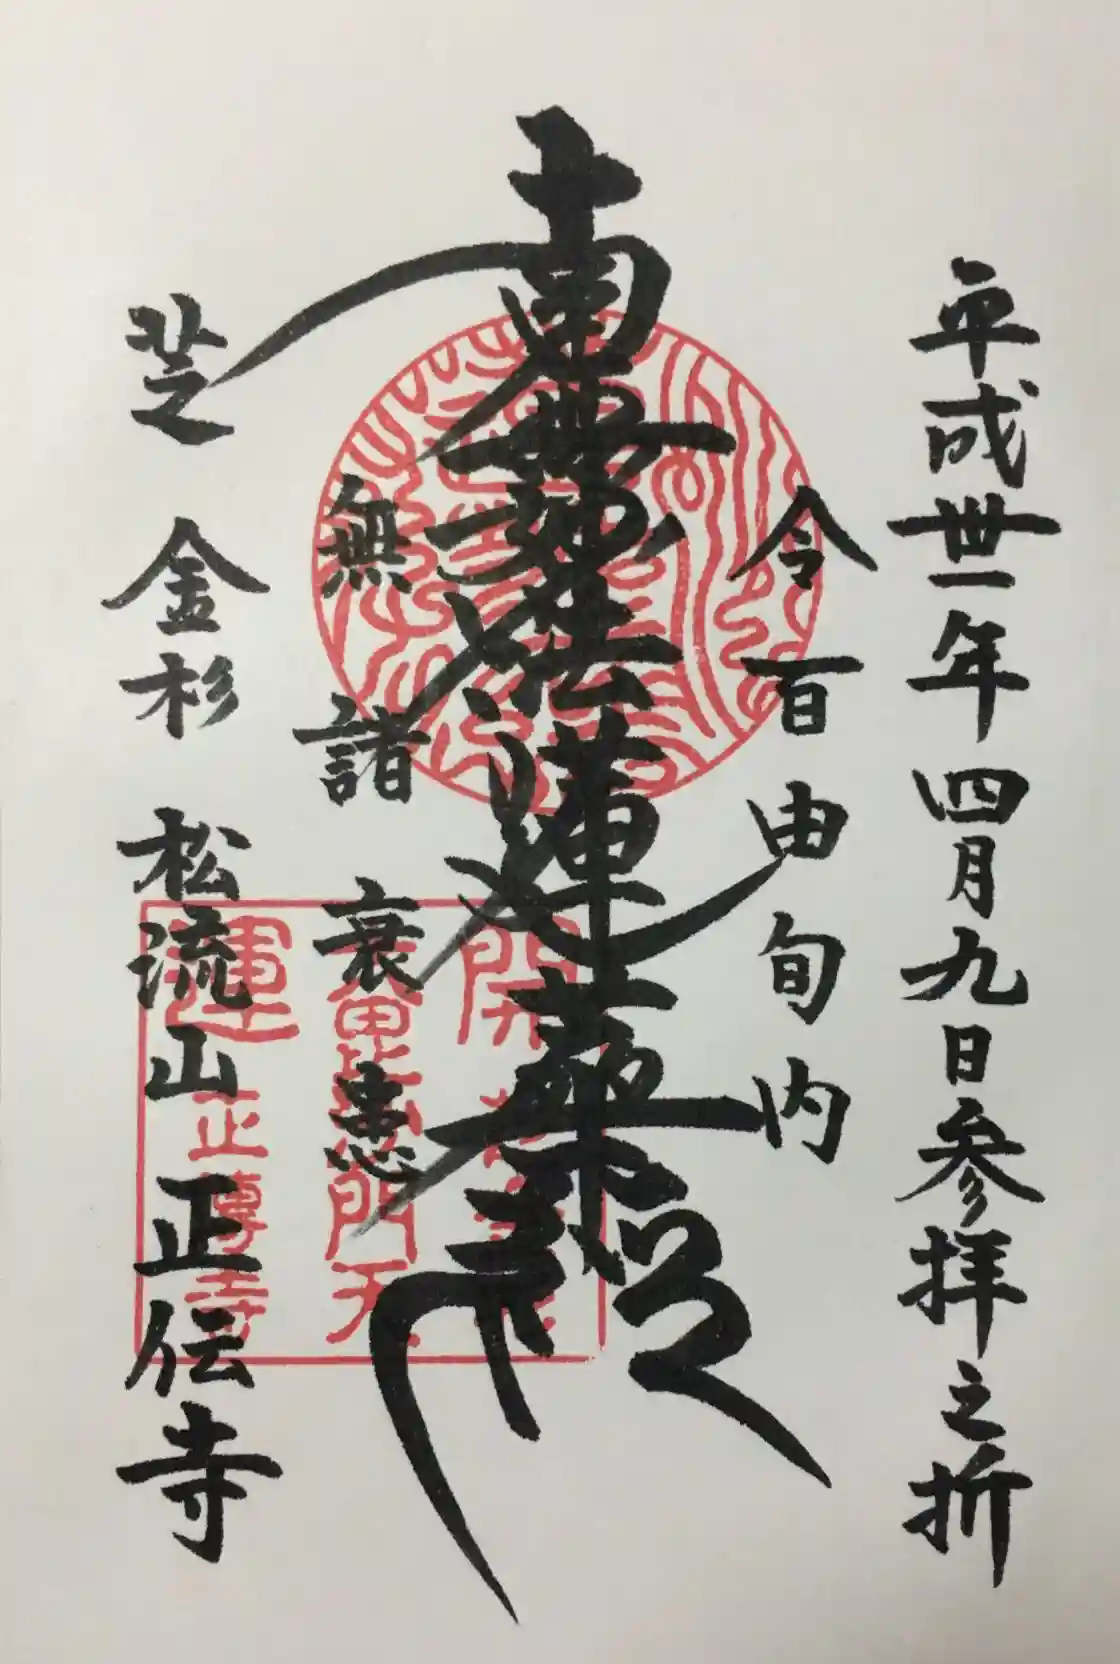 平成卅一年四月九日参拝之折
令百由旬内
南無妙法蓮華経
無諸衰患
芝 金杉 松流山 正伝寺
開運
毘沙門天